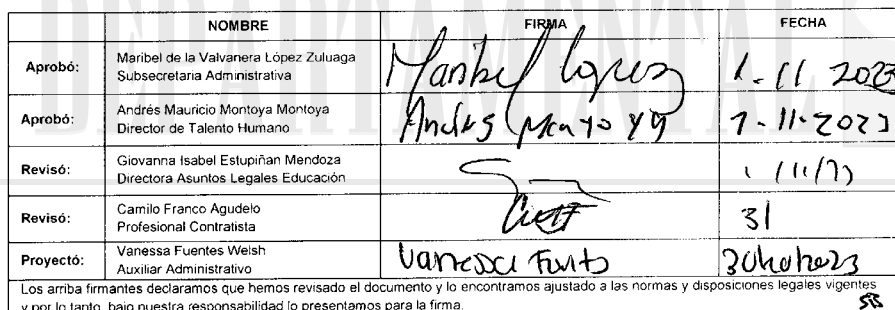 DEPARTAMENTAL
NOMBRE FIRMA FECHA
Aprobó: Maribel de la Valvanera López Zuluaga
Subsecretaria Administrativa Maribel López 1-11 2023
Aprobó: Andrés Mauricio Montoya Montoya
Director de Talento Humano Andrés 1-11-2023
Revisó: Giovanna Isabel Estupiñan Mendoza
Directora Asuntos Legales Educación
Revisó: Camilo Franco Agudelo
Profesional Contratista 31
Proyectó: Vanessa Fuentes Welsh
Auxiliar Administrativo Vanessa
Los arriba firmantes declaramos que hemos revisado el documento y lo encontramos ajustado a las normas y disposiciones legales vigentes
y por lo tanto, bajo nuestra responsabilidad lo presentamos para la firma.